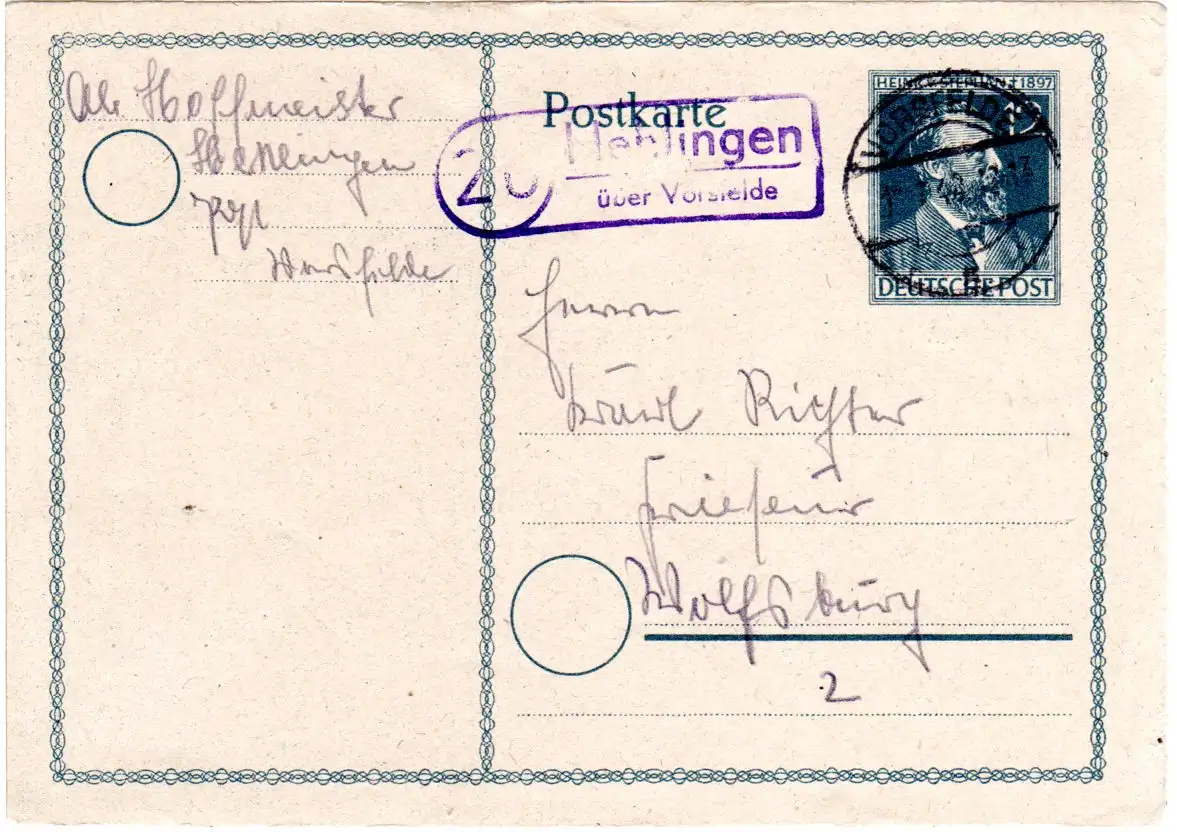 Hoffmeister
Vorsfelde
Postkarte
20
Hehlingen
über Vorsfelde
HEINR. V. STEPHAN † 1897
VORSFELDE
DEUTSCHE POST
Herrn
Karl Richter
Friseur
Wolfsburg
2